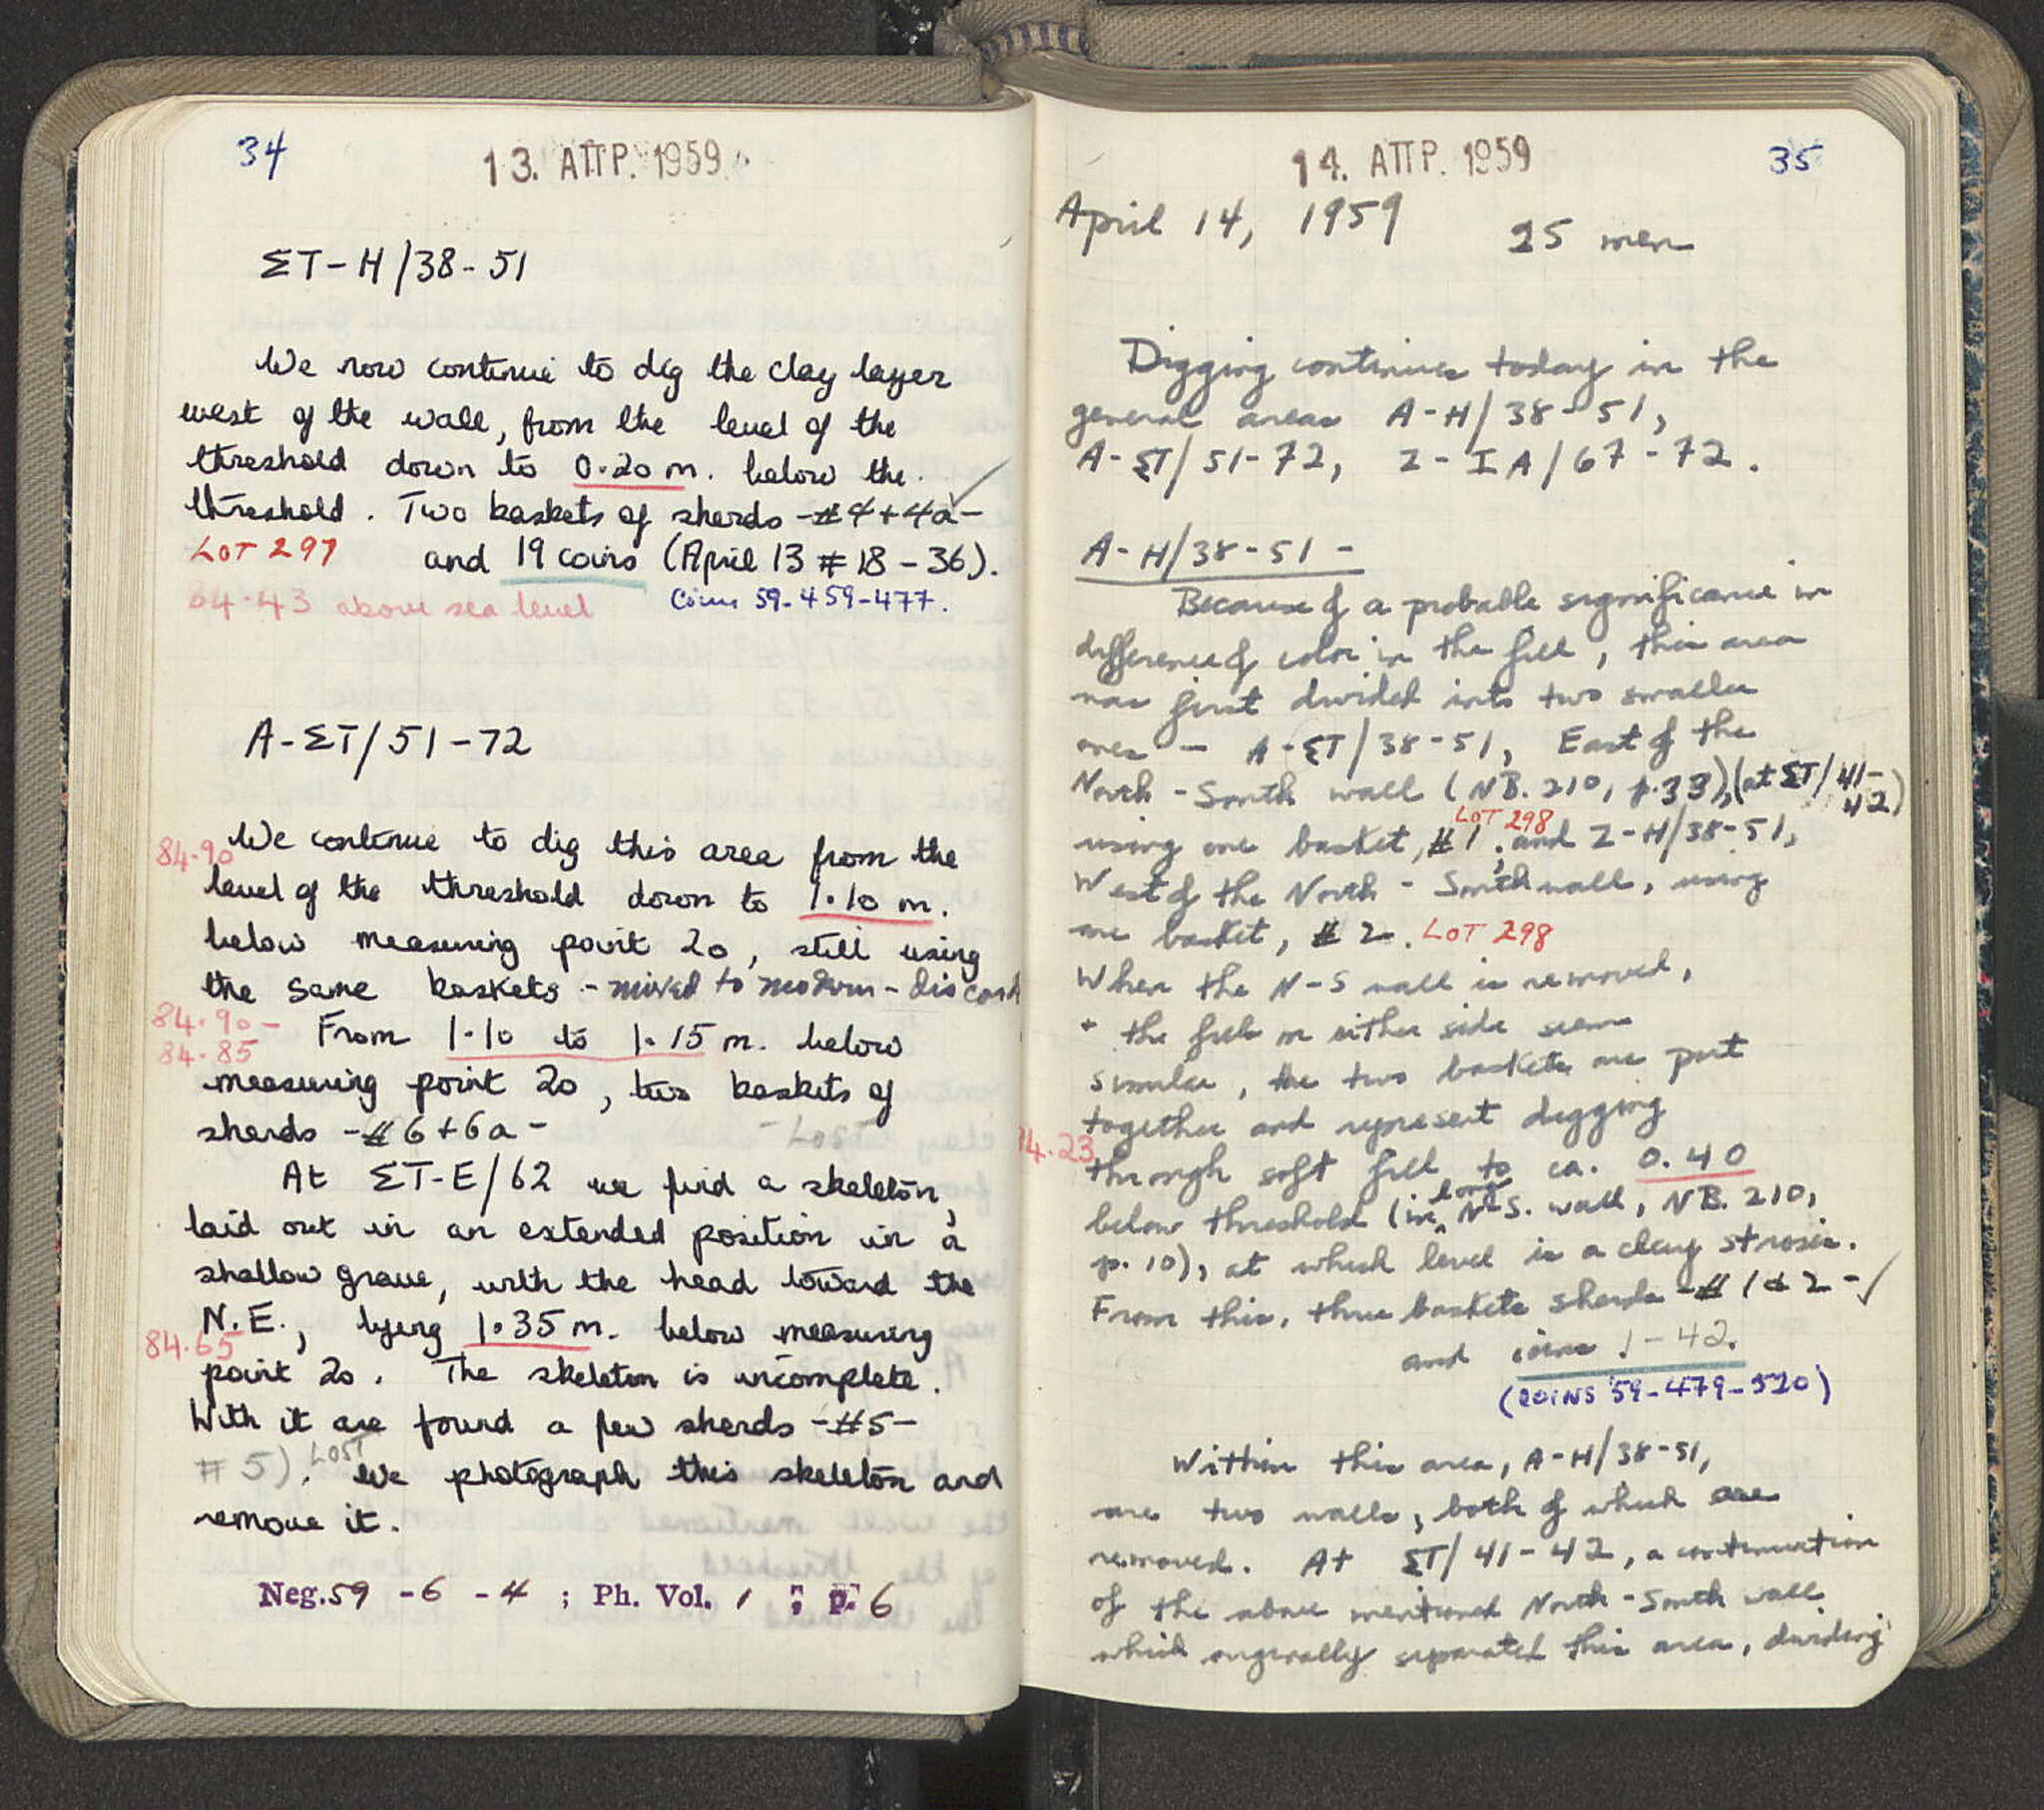 34
13. ΑΠΡ. 1959
ΣΤ-Η/38-51
We now continue to dig the clay layer
west of the wall, from the level of the
threshold down to 0.20 m. below the
threshold. Two baskets of sherds -#4+4a-
LOT 297 and 19 coins (April 13 #18-36).
84.43 above sea level Coins 59-459-477.
A-ΣΤ/51-72
84.90 We continue to dig this area from the
level of the threshold down to 1.10 m.
below measuring point 20, still using
the same baskets - mixed to modern - discard
84.90- From 1.10 to 1.15 m. below
84.85
measuring point 20, two baskets of
sherds -#6+6a-
At ΣΤ-Ε/62 we find a skeleton,
laid out in an extended position in a
shallow grave, with the head toward the
N.E., lying 1.35 m. below measuring
84.65
point 20. The skeleton is incomplete.
With it are found a few sherds -#5-
#5). LOST We photograph this skeleton and
remove it.
Neg.59 -6 -4 ; Ph. Vol. 1 ; p. 6
14. ΑΠΡ. 1959
35
April 14, 1959 25 men
Digging continues today in the
general areas A-H/38-51,
A-ΣΤ/51-72, Z-IA/67-72.
A-H/38-51 -
Because of a probable significance in
difference of color in the fill, this area
was first divided into two smaller
ones - A-ΣΤ/38-51, East of the
North-South wall (NB. 210, p.33), (at ΣΤ/41-
42)
LOT 298
using one basket, #1, and Z-H/38-51,
West of the North-South wall, using
one basket, #2. LOT 298
When the N-S wall is removed,
+ the fill on either side seems
similar, the two baskets are put
together and represent digging
84.23
through soft fill to ca. 0.40
below threshold (in long N-S. wall, NB. 210,
p. 10), at which level is a clay strosis.
From this, three baskets sherds -#1&2-✓
and coins 1-42.
(COINS 59-479-520)
Within this area, A-H/38-51,
are two walls, both of which are
removed. At ΣΤ/41-42, a continuation
of the above mentioned North-South wall
which originally separated this area, dividing